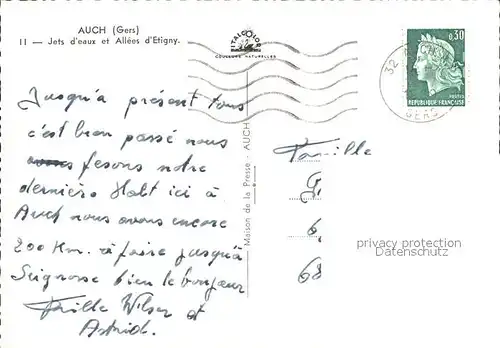 AUCH (Gers)
11 — Jets d'eaux et Allées d'Etigny.
ITALCOLOR
COULEURS NATURELLES
0,30
POSTES
REPUBLIQUE FRANÇAISE
32
GERS
Jusqu'à présent tous
c'est bien passé nous
fesons notre
derniers Halt ici à
Auch nous avons encore
200 Km. à faire jusqu'à
Seignosse bien le bonjour
Fville Wilser et
Astrid.
Maison de la Presse - AUCH
Famille
G.
6.
68
privacy protection
Datenschutz